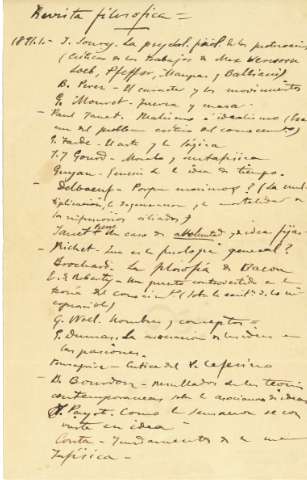 Revista filosófica =
1891.1.- J. Soury. La psycol. fisiol. de los protozoarios
(Crítica de los trabajos de Max Verworn
Loeb, Pfeffer, Maupas y Balbiani)
B. Perez - El caracter y los movimientos
G. Mouret - fuerza y masa.
- Paul Janet - Realismo e idealismo
del problema crítico del conocimiento)
G. Tarde - El arte y la lógica
J. J Gourd - Moral y metafisica
Guyau - Genesis de la idea de tiempo.
- Delboeuf - Porque morimos? (La
la degeneracion y la mortalidad de
los infusorios ciliados)
Janet - Un caso de aboulia e idea fija.
- Richet - Que es la fisiologia general?
Brochard - La filosofia de Bacon
E. de Roberty - Un punto controvertido en la
teoria del
G. Noël. Nombres y conceptos =
G. Dumas, La asociacion de ideas en
las pasiones.
- critica del V. Ceferino
- B. Bourdon - resultados de las teorias
contemporaneas sobre la asociacion de ideas
J. Payot. Como la sensacion se con-
vierte en idea
Conta - Fundamentos de la me
tafísica -